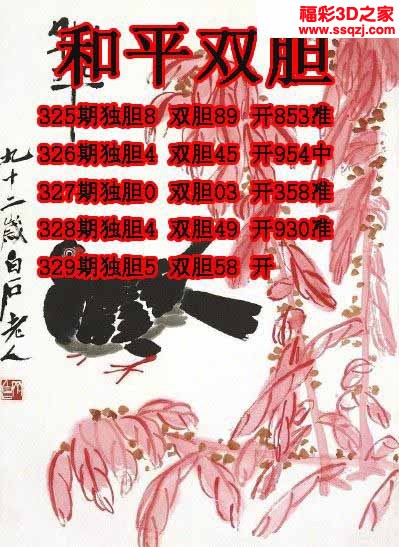 福彩3D之家
www.ssqzj.com
和平双胆
325期独胆8 双胆89 开853准
326期独胆4 双胆45 开954中
327期独胆0 双胆03 开358准
328期独胆4 双胆49 开930准
329期独胆5 双胆58 开
九十二岁白石老人